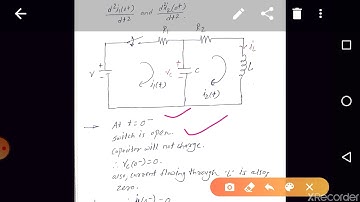 d²i₁(0⁺)/dt² and d²i₂(0⁺)/dt².
R₁ R₂
i₂
V Vc C L
i₁(t) i₂(t)
→ At t = 0⁻
switch is open.
Capacitor will not charge.
∴ Vc(0⁻) = 0.
also, current flowing through 'L' is also
zero.
XRecorder